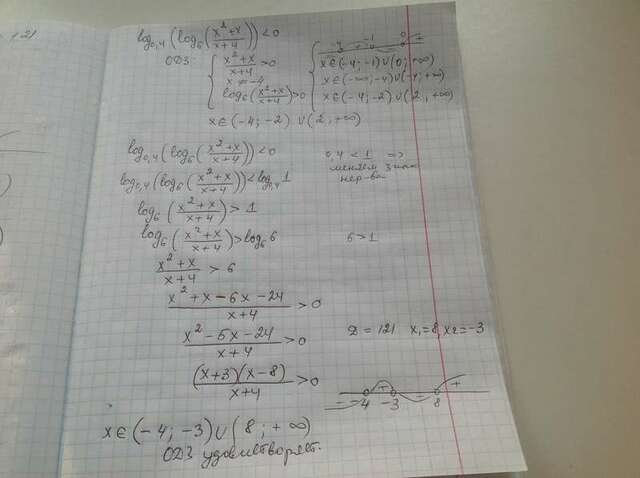 121
log₀,₄(log₆((x²+x)/(x+4))) < 0
ОДЗ: { (x²+x)/(x+4) > 0
x ≠ -4
log₆((x²+x)/(x+4)) > 0
-4 -1 0 +
x∈(-4;-1)∪(0;+∞)
x∈(-∞;-4)∪(-4;+∞)
x∈(-4;-2)∪(2;+∞)
x∈(-4;-2)∪(2;+∞)
log₀,₄(log₆((x²+x)/(x+4))) < 0 0,4 < 1 =>
меняем знак
нер-ва
log₀,₄(log₆((x²+x)/(x+4))) < log₀,₄ 1
log₆((x²+x)/(x+4)) > 1
log₆((x²+x)/(x+4)) > log₆ 6 6 > 1
(x²+x)/(x+4) > 6
(x²+x-6x-24)/(x+4) > 0
(x²-5x-24)/(x+4) > 0 D = 121 x₁=8, x₂=-3
((x+3)(x-8))/(x+4) > 0
- + - +
-4 -3 8
x∈(-4;-3)∪(8;+∞)
ОДЗ удовлетворяет.